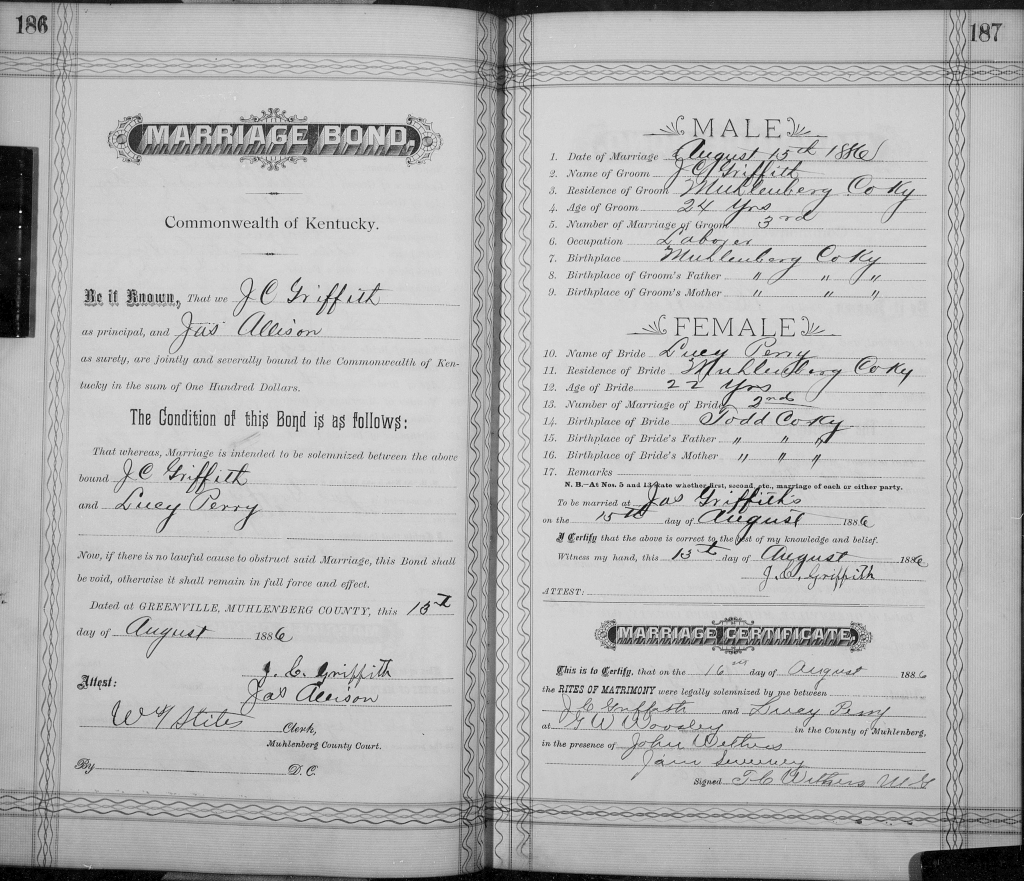 186
MARRIAGE BOND,
Commonwealth of Kentucky.
Be it Known, That we J C Griffith
as principal, and Jas Allison
as surety, are jointly and severally bound to the Commonwealth of Ken-
tucky in the sum of One Hundred Dollars.
The Condition of this Bond is as follows:
That whereas, Marriage is intended to be solemnized between the above
bound J C Griffith
and Lucy Perry
Now, if there is no lawful cause to obstruct said Marriage, this Bond shall
be void, otherwise it shall remain in full force and effect.
Dated at GREENVILLE, MUHLENBERG COUNTY, this 13th
day of August 1886
J. C. Griffith
Attest: Jas Allison
Stites Clerk,
Muhlenberg County Court.
By D. C.
187
MALE
1. Date of Marriage August 15th 1886
2. Name of Groom J C Griffith
3. Residence of Groom Muhlenberg Co Ky
4. Age of Groom 24 Yrs
5. Number of Marriage of Groom 3rd
6. Occupation Laborer
7. Birthplace Muhlenberg Co Ky
8. Birthplace of Groom's Father " " "
9. Birthplace of Groom's Mother " " "
FEMALE
10. Name of Bride Lucy Perry
11. Residence of Bride Muhlenberg Co Ky
12. Age of Bride 22 Yrs
13. Number of Marriage of Bride 2nd
14. Birthplace of Bride Todd Co Ky
15. Birthplace of Bride's Father " " "
16. Birthplace of Bride's Mother " " "
17. Remarks
N. B.—At Nos. 5 and 13 state whether first, second, etc., marriage of each or either party.
To be married at Jas Griffith's
on the 15th day of August 1886
I Certify that the above is correct to the best of my knowledge and belief.
Witness my hand, this 13th day of August 1886
J. C. Griffith
ATTEST:
MARRIAGE CERTIFICATE,
This is to Certify, that on the 16 day of August 1886
the RITES OF MATRIMONY were legally solemnized by me between
J C Griffith and Lucy Perry
at G W in the County of Muhlenberg,
in the presence of John Withers
Sweeney
Signed T C Withers M G